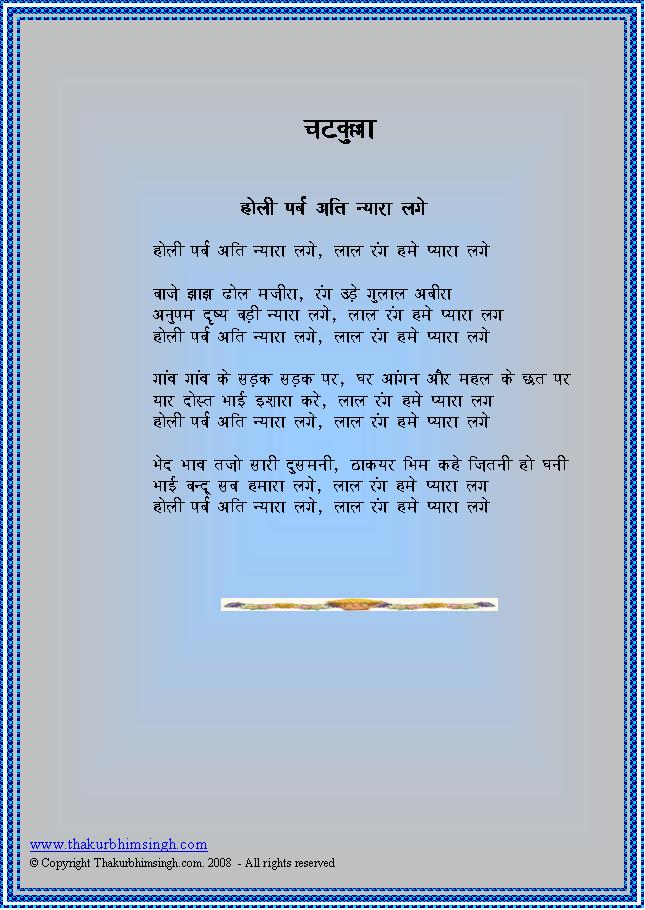 चटकुल्ला
होली पर्व अति न्यारा लगे
होली पर्व अति न्यारा लगे, लाल रंग हमे प्यारा लगे
बाजे झाझ ढोल मजीरा, रंग उड़े गुलाल अबीरा
अनुपम दृष्य बड़ी न्यारा लगे, लाल रंग हमे प्यारा लग
होली पर्व अति न्यारा लगे, लाल रंग हमे प्यारा लगे
गांव गांव के सड़क सड़क पर, घर आंगन और महल के छत पर
यार दोस्त भाई इशारा करे, लाल रंग हमे प्यारा लग
होली पर्व अति न्यारा लगे, लाल रंग हमे प्यारा लगे
भेद भाव तजो सारी दुसमनी, ठाकयर भिम कहे जितनी हो घनी
भाई बन्दू सब हमारा लगे, लाल रंग हमे प्यारा लग
होली पर्व अति न्यारा लगे, लाल रंग हमे प्यारा लगे
www.thakurbhimsingh.com
© Copyright Thakurbhimsingh.com. 2008 - All rights reserved